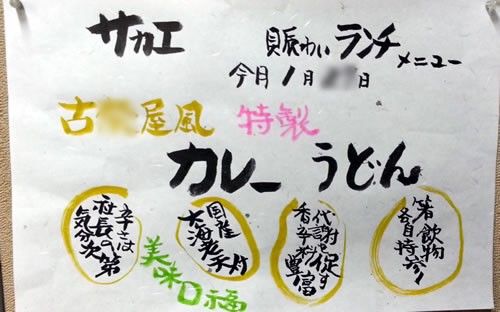 サカエ
賑わいランチメニュー
今月1月 日
古 屋風 特製
カレーうどん
箸、飲物
各自持参
代謝を促す
香辛料豊富
国産
大海老天付
辛さは
社長の
気分次第
美味口福